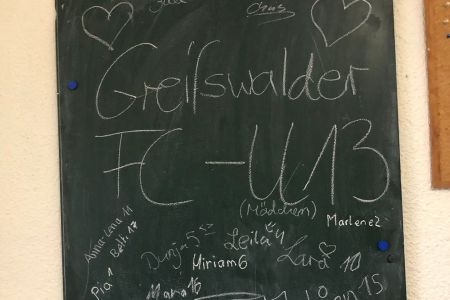 Greifswalder
FC - U13
(Mädchen)
Marlene 2
Anna-Lena 11
Betti 17
Pia 1
Dunja 5
Leila 4
Miriam 6
Lara 10
Maria 16
15